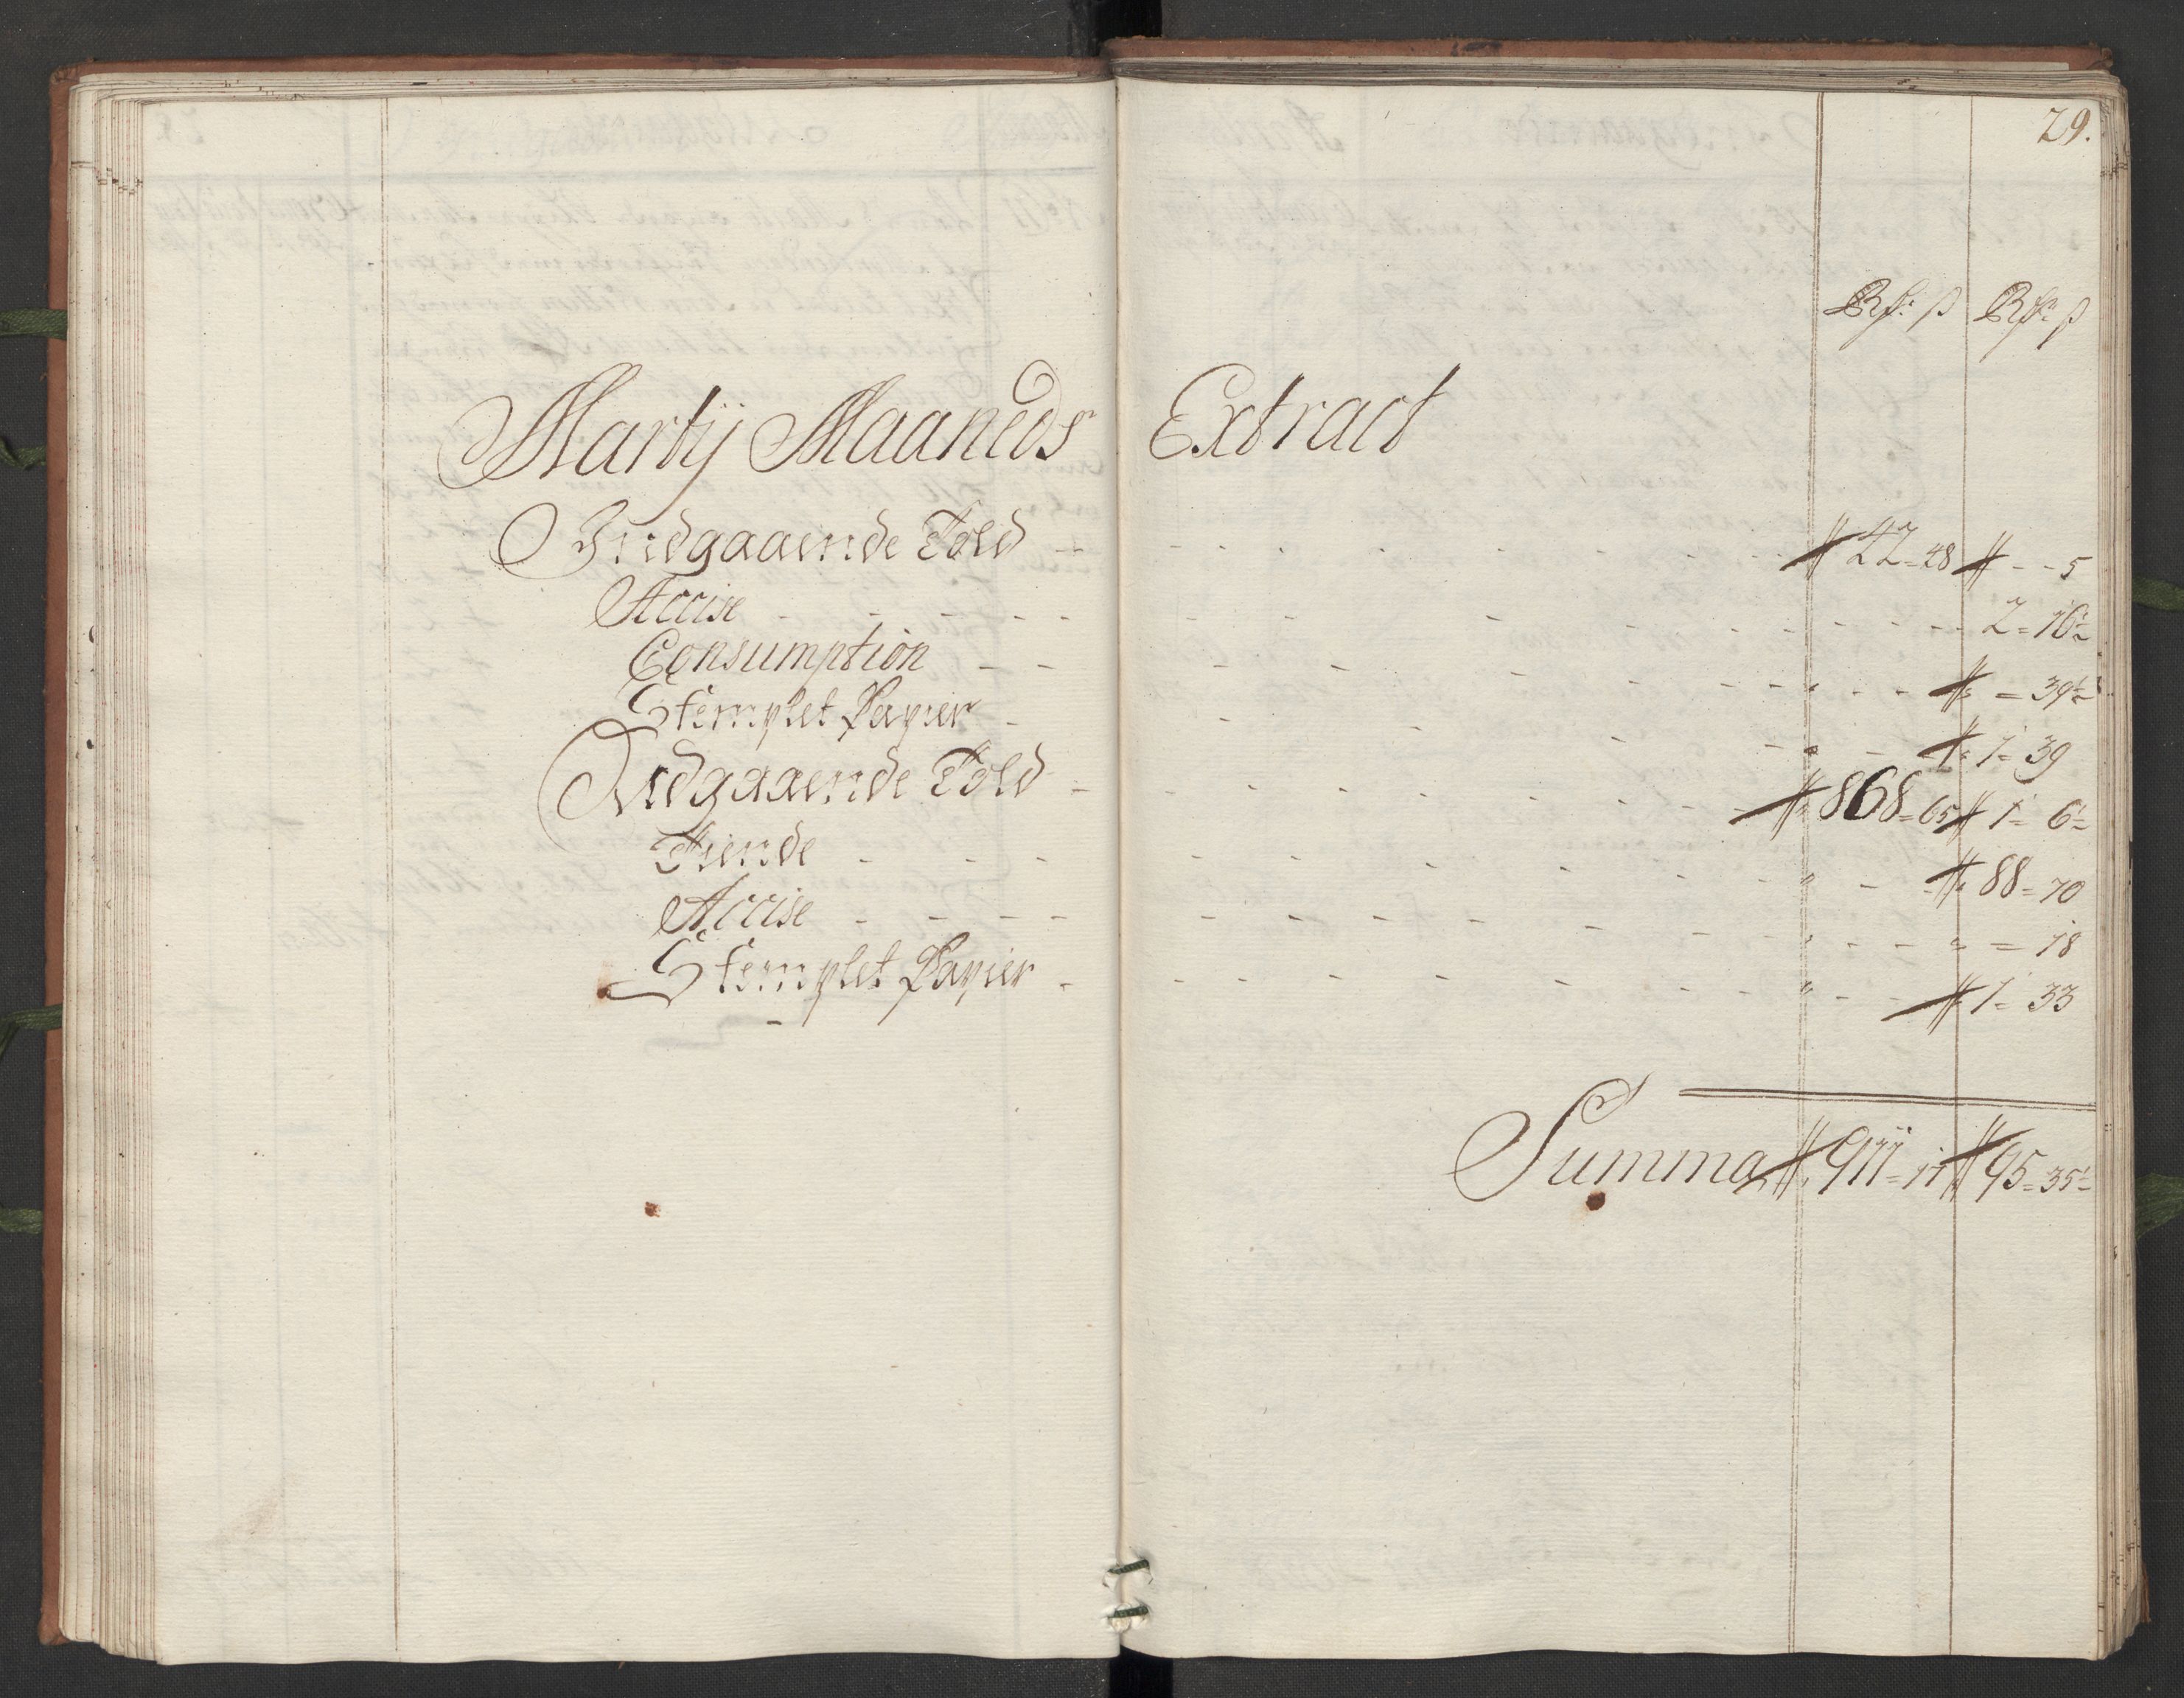 29.
Rdr ß Rdr ß
Martij Maaneds Extract
Indgaaende Told - - - - - - - - - 42 = 48 - - 5
Accise - - - - - - - - - 2 = 16½
Consumption - - - - - - - - - = 39½
Stemplet Papier - - - - - - - 1 = 39
Udgaaende Told - - - - - - - 868 = 65 1 = 6½
Tiende - - - - - - - - - 88 = 70
Accise - - - - - - - - - = 18
Stemplet Papier - - - - - - - 1 = 33
Summa 911 = 17 95 = 35½